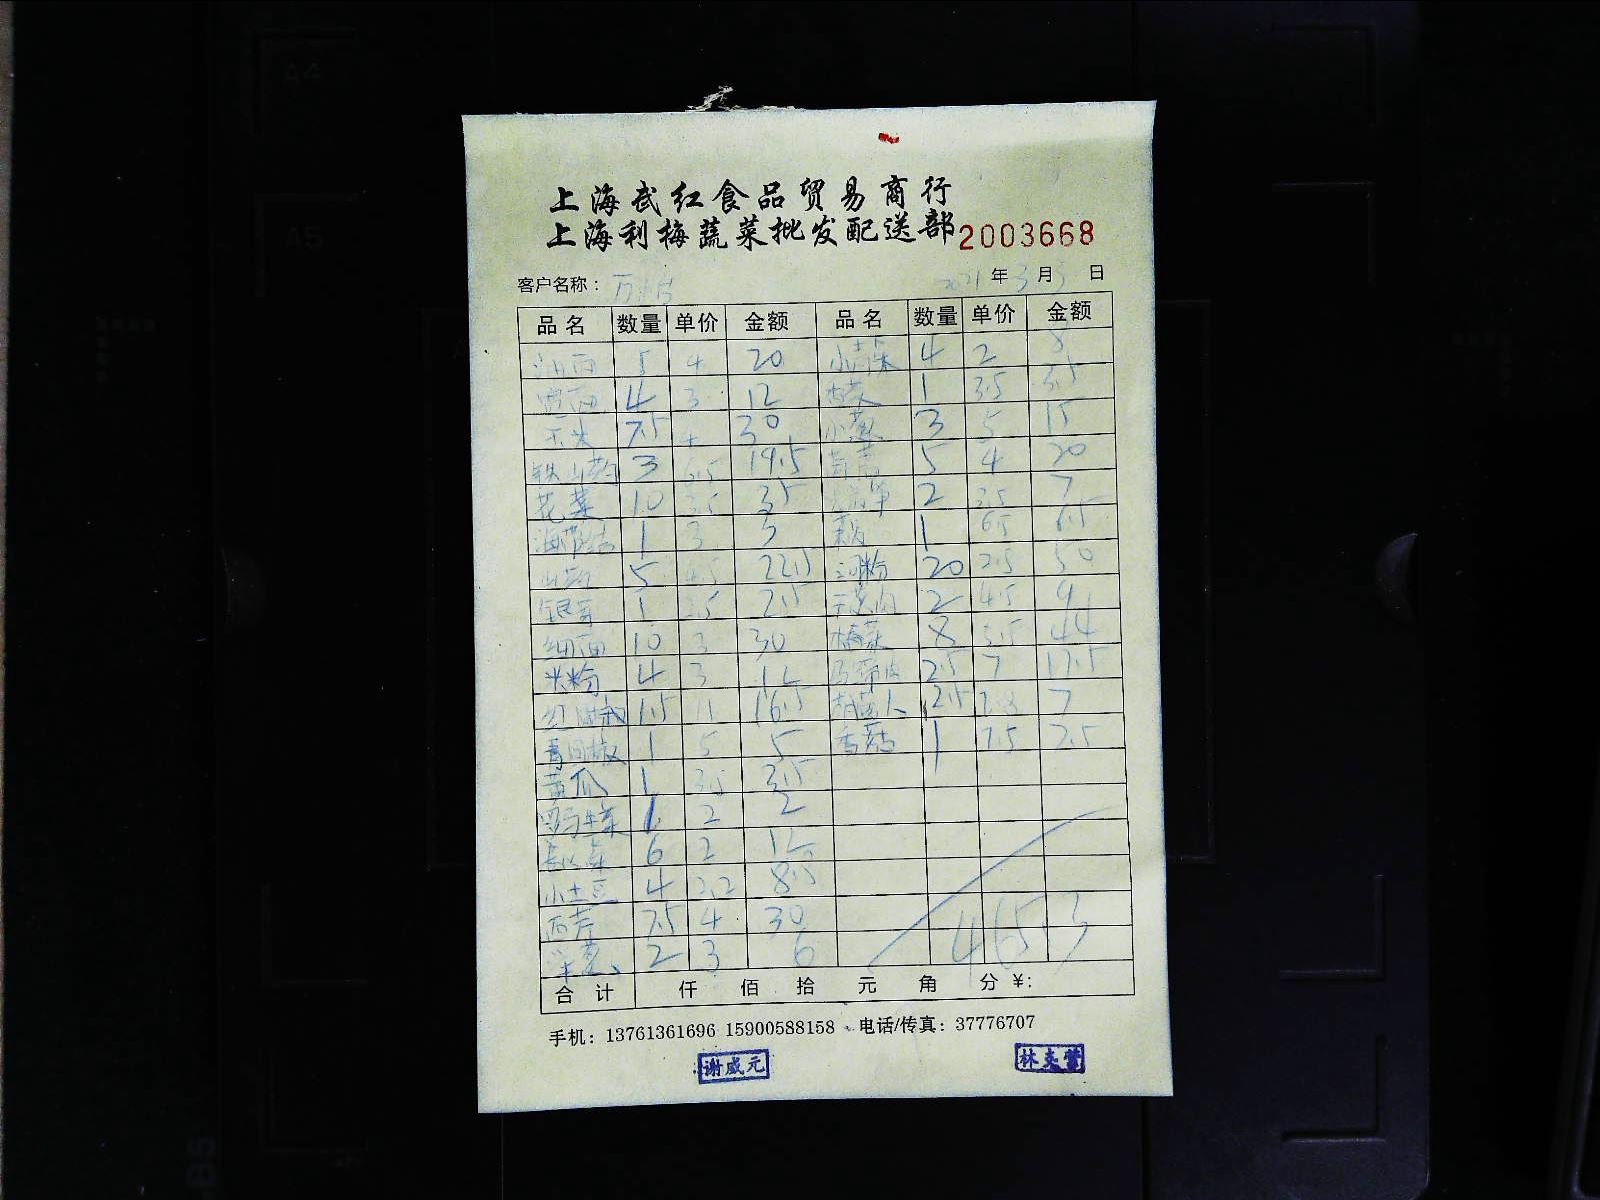 上海武红食品贸易商行
上海利梅蔬菜批发配送部 2003668
客户名称： 2021年3月5日
品名 数量 单价 金额 品名 数量 单价 金额
5 4 20 4 2 8
4 3 12 1 3.5 3.5
7.5 4 30 小葱 3 5 15
铁山药 3 6.5 19.5 5 4 20
花菜 10 3.5 35 2 3.5 7
海带结 1 3 3 1 6.5 6.5
山药 5 4.5 22.5 河粉 20 2.5 50
银芽 1 2.5 2.5 2 4.5 9
细面 10 3 30 榨菜 8 5.5 44
米粉 4 3 12 2.5 7 17.5
红圆椒 1.5 11 16.5 2.5 2.8 7
青圆椒 1 5 5 香菇 1 7.5 7.5
黄瓜 1 3.5 3.5
罗马生菜 1 2 2
6 2 12
小土豆 4 2.2 8.5
西芹 7.5 4 30
洋葱 2 3 6
465.3
合计 仟 佰 拾 元 角 分 ¥:
手机：13761361696 15900588158 电话/传真：37776707
谢成元 林夫营